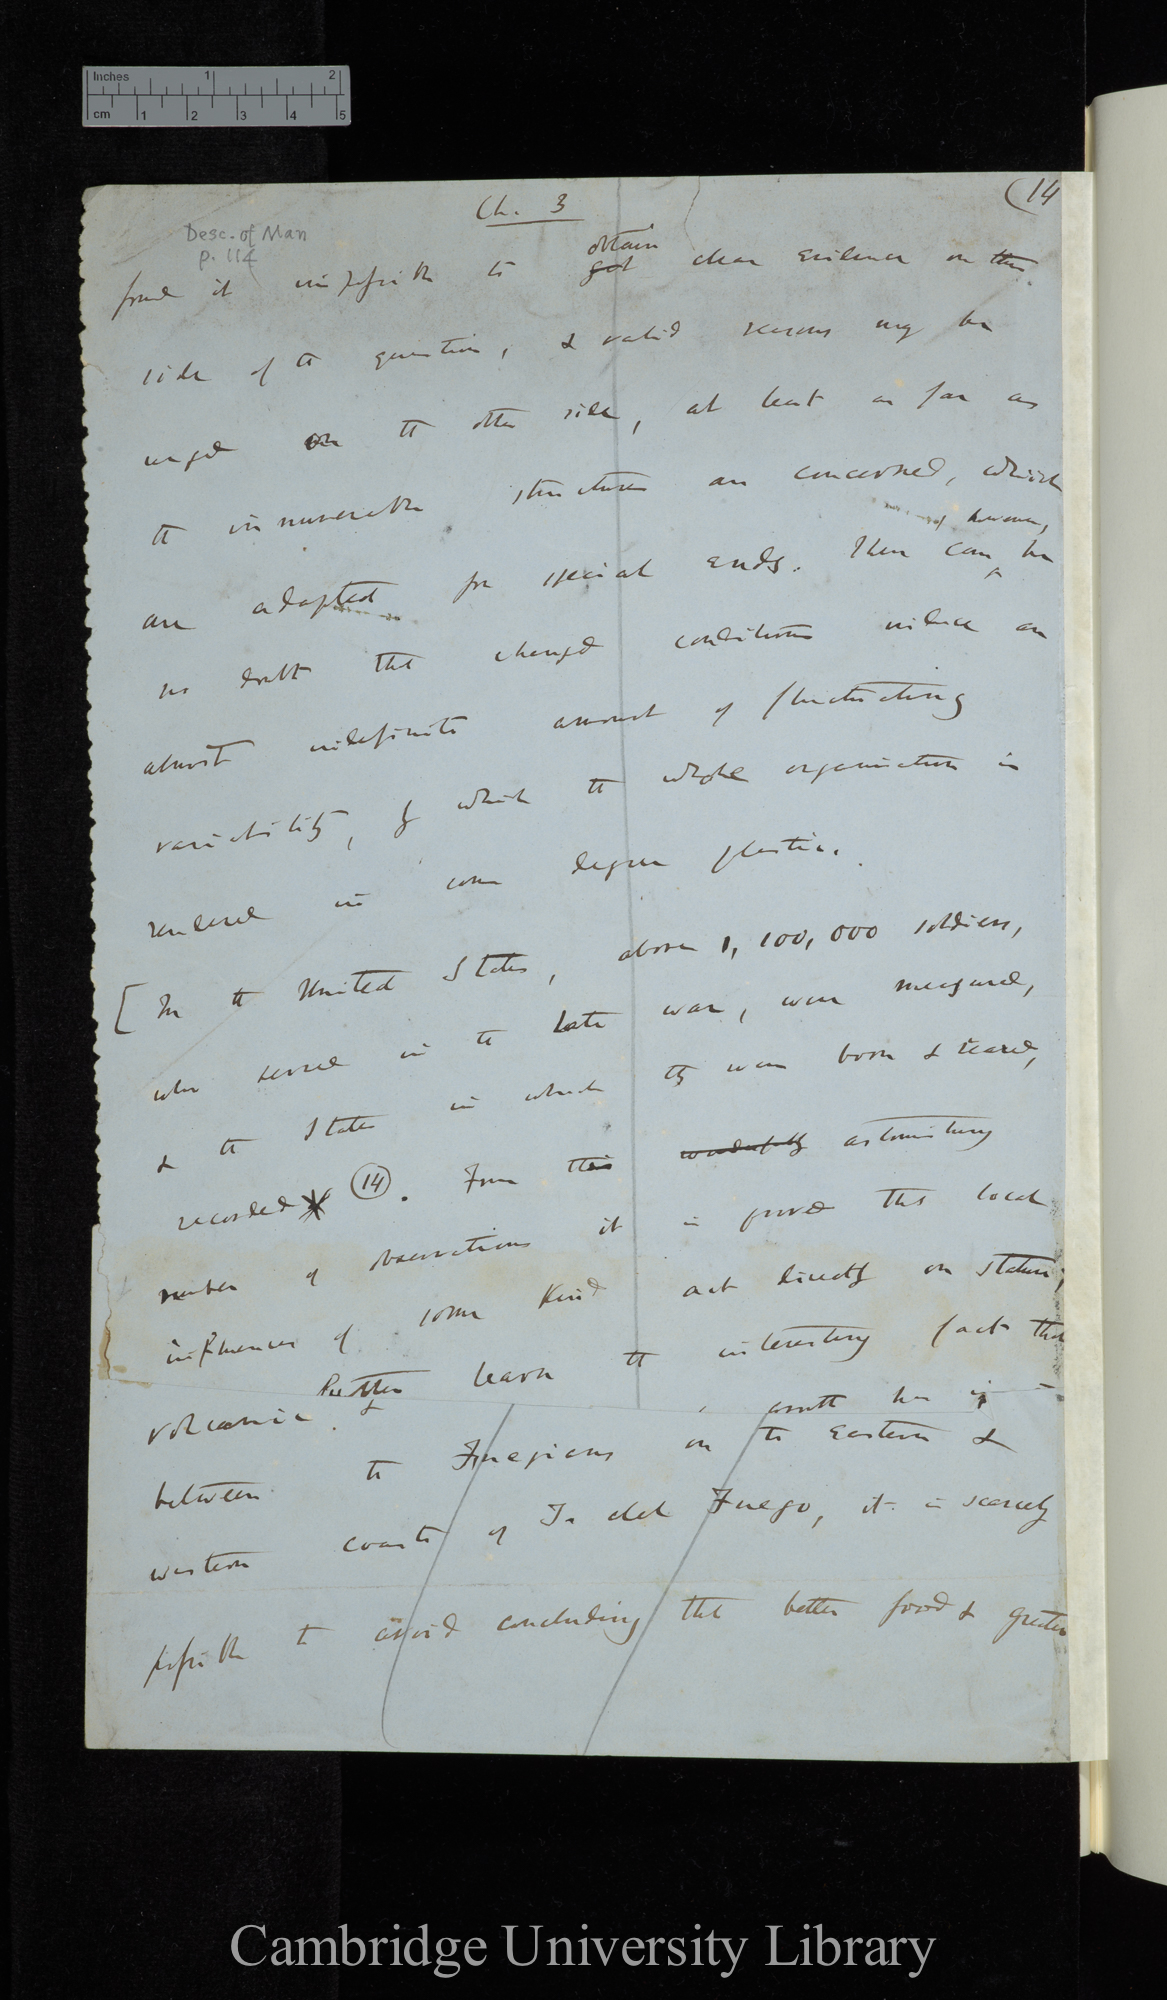 Inches 1 2
cm 1 2 3 4 5
Ch. 3
(14
Desc. of Man
p. 114
obtain
found it impossible to got clear evidence on this
side of the question, & valid reasons may be
urged on the other side, at least as far as
the innumerable structures are concerned, which
however,
are adapted for special ends. There can be
no doubt that changed conditions induce an
almost indefinite amount of fluctuating
variability, by which the whole organisation is
rendered in some degree plastic.
[In the United States, above 1,100,000 soldiers,
who served in the late war, were measured,
& the States in which they were born & reared,
recorded (14). From this wonderfully astonishing
number of observations it is proved that local
influences of some kind act directly on stature;
& further learn the interesting fact that
volcanic
between the Fuegians on the Eastern &
western coasts of Ta del Fuego, it is scarcely
possible to avoid concluding that better food & greater
Cambridge University Library